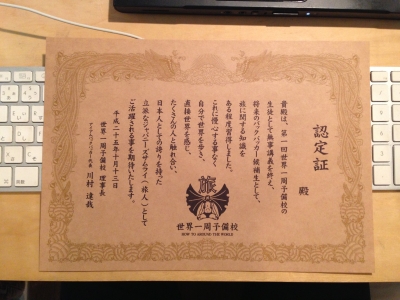 認定証
殿
貴殿は、第一回世界一周予備校の
生徒として無事講義を終え、
将来のバックパッカー候補生として、
旅に関する知識を
ある程度習得しました。
これに慢心する事なく
自分で世界を歩き、
直接世界を感じ、
たくさんの人と触れ合い、
日本人としての誇りを持った
立派なジャパニーズサムライ(旅人)として
ご活躍される事を期待いたします。
平成二十五年十月十三日
世界一周予備校 理事長
川村 達哉
旅
世界一周予備校
HOW TO AROUND THE WORLD